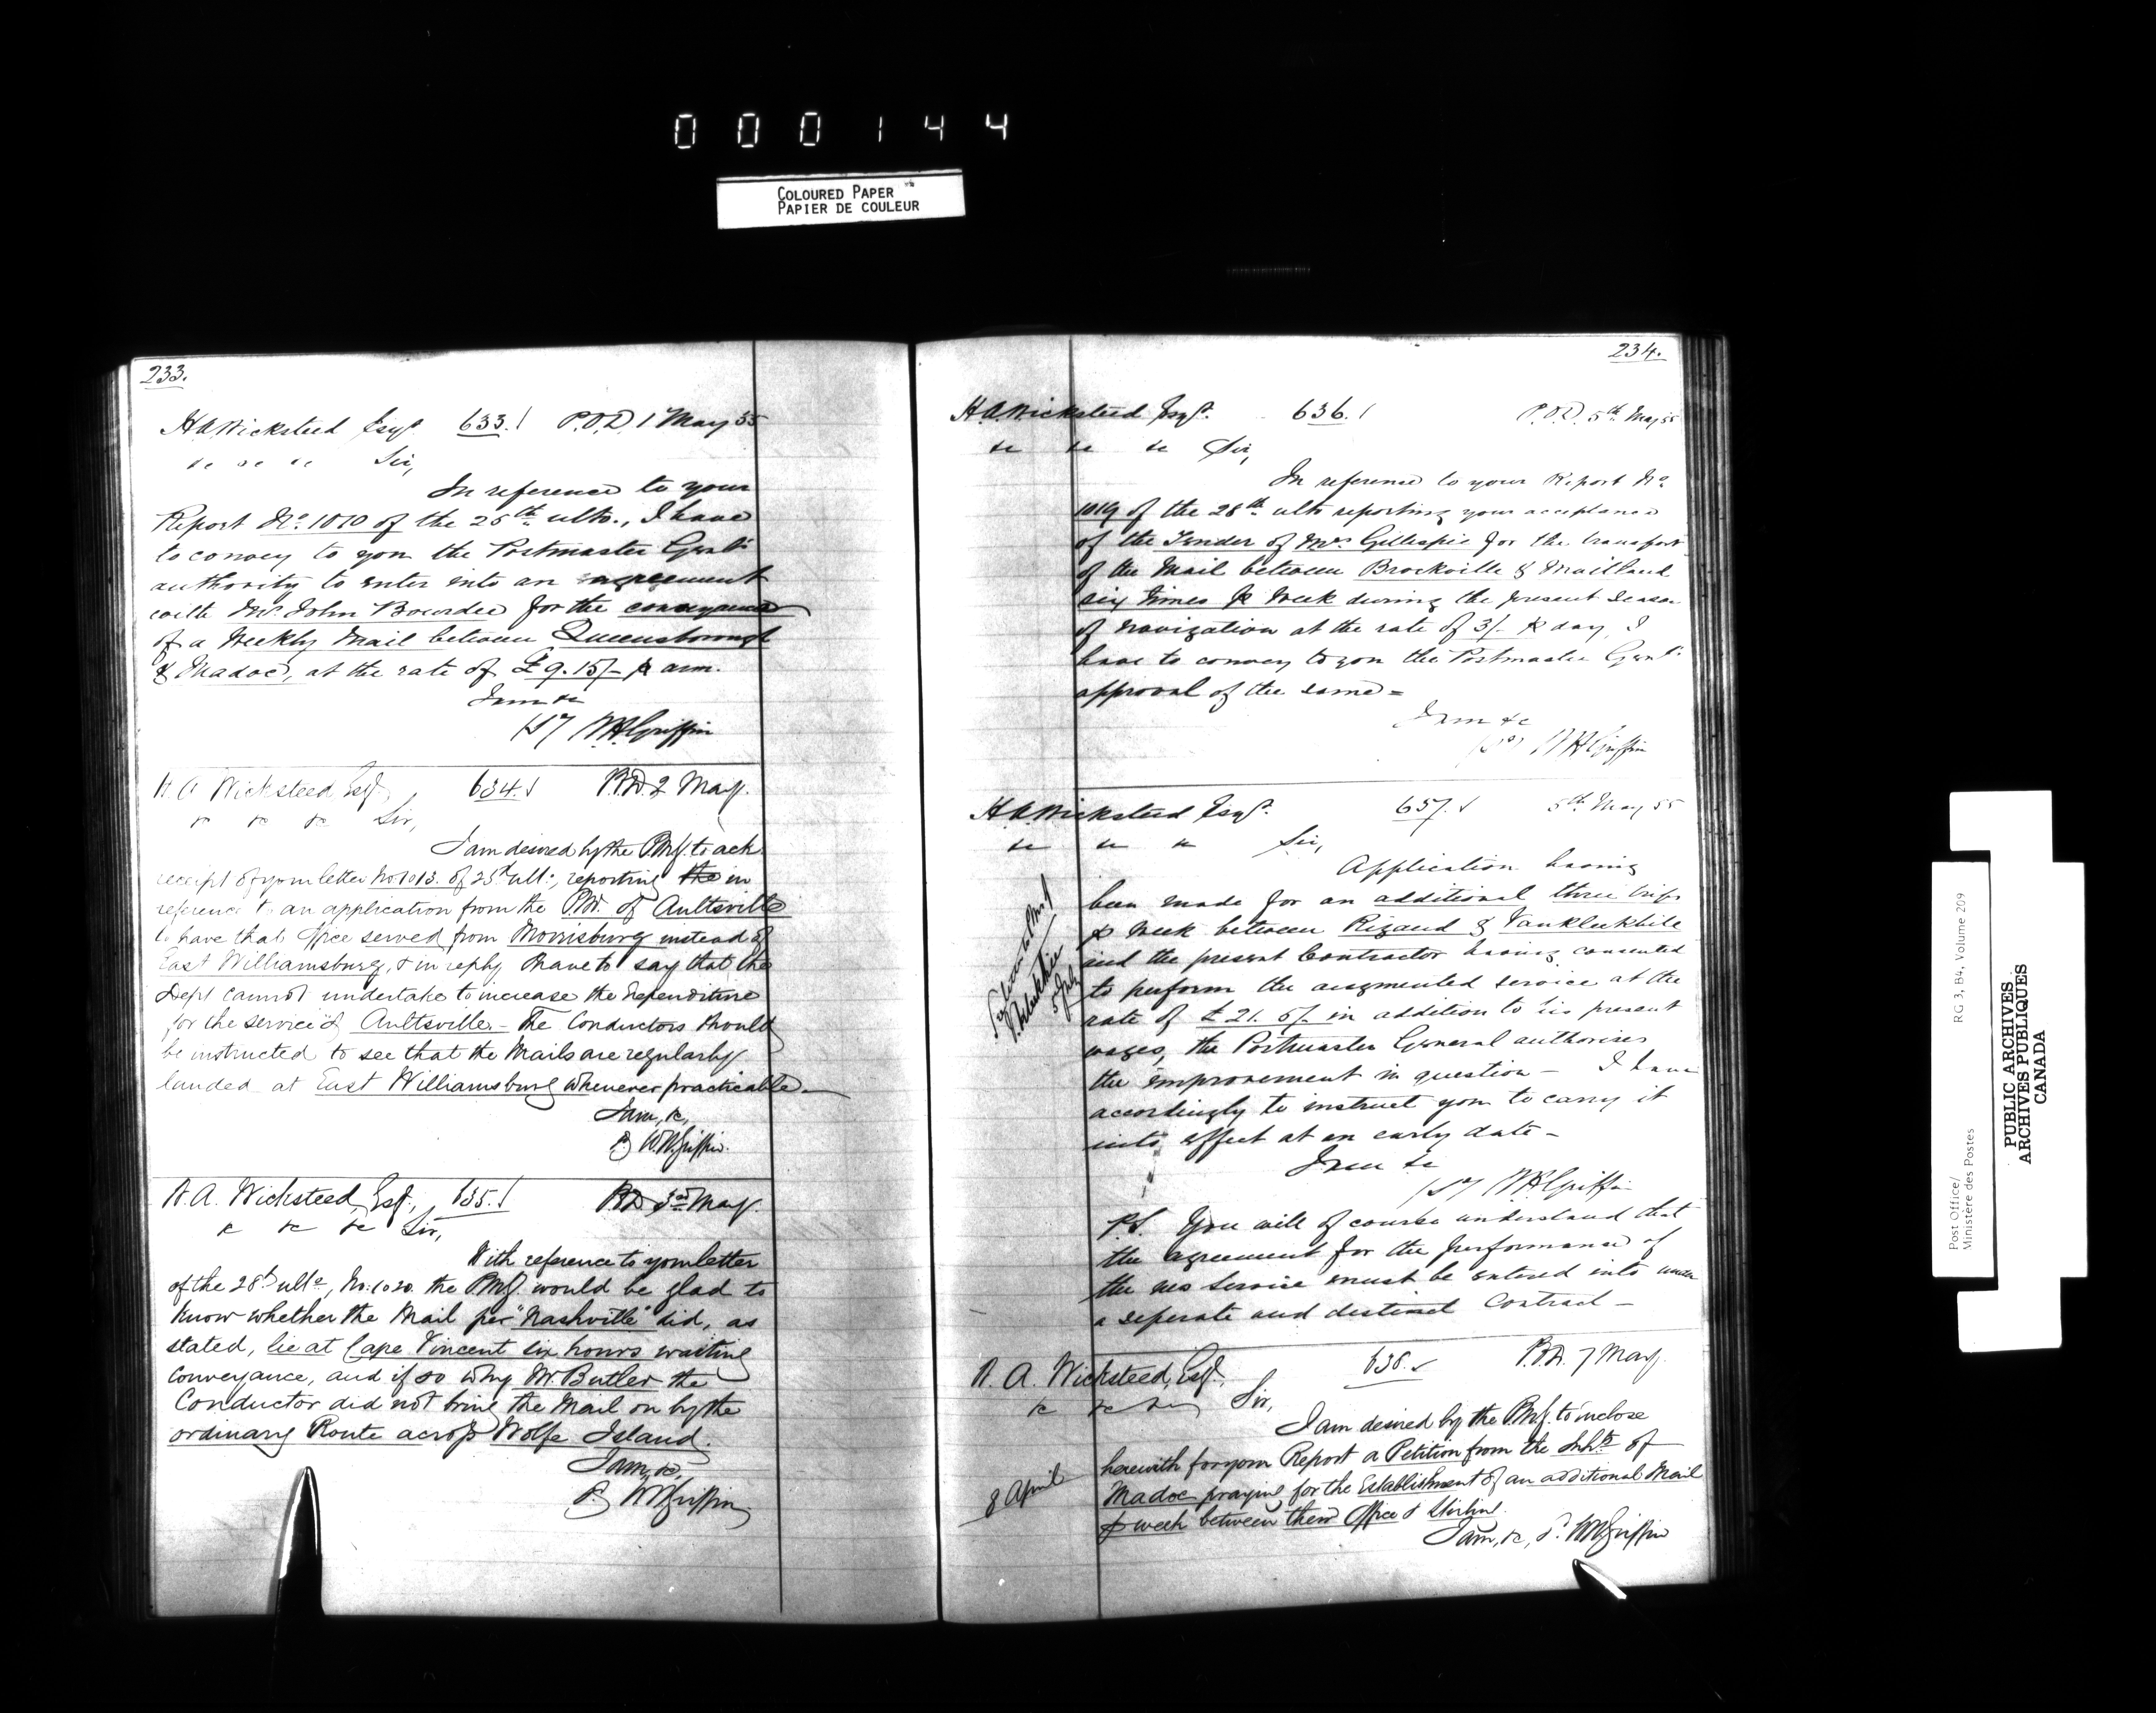 000144
COLOURED PAPER
PAPIER DE COULEUR
233.
H A Wicksteed Esqr. 633. P.O.D. 1 May 55
" " " Sir,
In reference to your
Report No. 1010 of the 25th ulto., I have
to convey to you the Postmaster Genl's
authority to enter into an agreement
with Mr. John Bowdee for the conveyance
of a Weekly Mail between Queensborough
& Madoc, at the rate of £9.15/- p ann.
I am &c
W H Griffin
H. A Wicksteed Esq. 634. P.O.D. 2 May.
&c &c &c Sir,
I am desired by the P.M.G. to ack.
receipt of your letter No 1013. of 25th ult:, reporting the in
reference to an application from the P.M. of Aultsville
to have that Office served from Morrisburg instead of
East Williamsburg, & in reply I have to say that the
Dept cannot undertake to increase the expenditure
for the service of Aultsville – The Conductors should
be instructed to see that the Mails are regularly
landed at East Williamsburg whenever practicable. –
I am, &c,
W.H. Griffin.
H. A. Wicksteed, Esq., 635. P.O.D. 3rd May.
&c &c &c Sir,
With reference to your letter
of the 28th ulto, No. 1020. the P.M.G. would be glad to
know whether the Mail per "Nashville" did, as
stated, lie at Cape Vincent six hours waiting
conveyance, and if so why Mr. Butler the
Conductor did not bring the Mail on by the
ordinary Route across Wolfe Island.
I am, &c,
W H Griffin
234.
H. A. Wicksteed Esqr. 636. P.O.D. 5th May 55
&c &c &c Sir,
In reference to your Report No.
1019 of the 28th ulto reporting your acceptance
of the Tender of Mr. Gillespie for the transport
of the Mail between Brockville & Maitland
six times p Week during the present season
of navigation at the rate of 3/- p day, I
have to convey to you the Postmaster Genl's
approval of the same =
I am &c
W H Griffin
H A Wicksteed Esqr. 637. 5th May 55
&c &c &c Sir,
Application having
been made for an additional three trips
p Week between Rigaud & Vankleekhill
and the present Contractor having consented
to perform the augmented service at the
rate of £21. 5/- in addition to his present
wages, the Postmaster General authorises
the improvement in question – I have
accordingly to instruct you to carry it
into effect at an early date –
I am &c
W H Griffin
P.S. You will of course understand that
the agreement for the performance of
the new Service must be entered into under
a seperate and distinct Contract –
H. A. Wicksteed, Esq., 638. P.O.D. 7 May.
&c &c Sir,
I am desired by the P.M.G. to inclose
8 April
herewith for your Report a Petition from the Inhts of
Madoc praying for the Establishment of an additional Mail
p week between their Office & Stirling.
I am, &c, W H Griffin
Post Office/
Ministère des Postes
RG 3, B4, Volume 209
PUBLIC ARCHIVES
ARCHIVES PUBLIQUES
CANADA